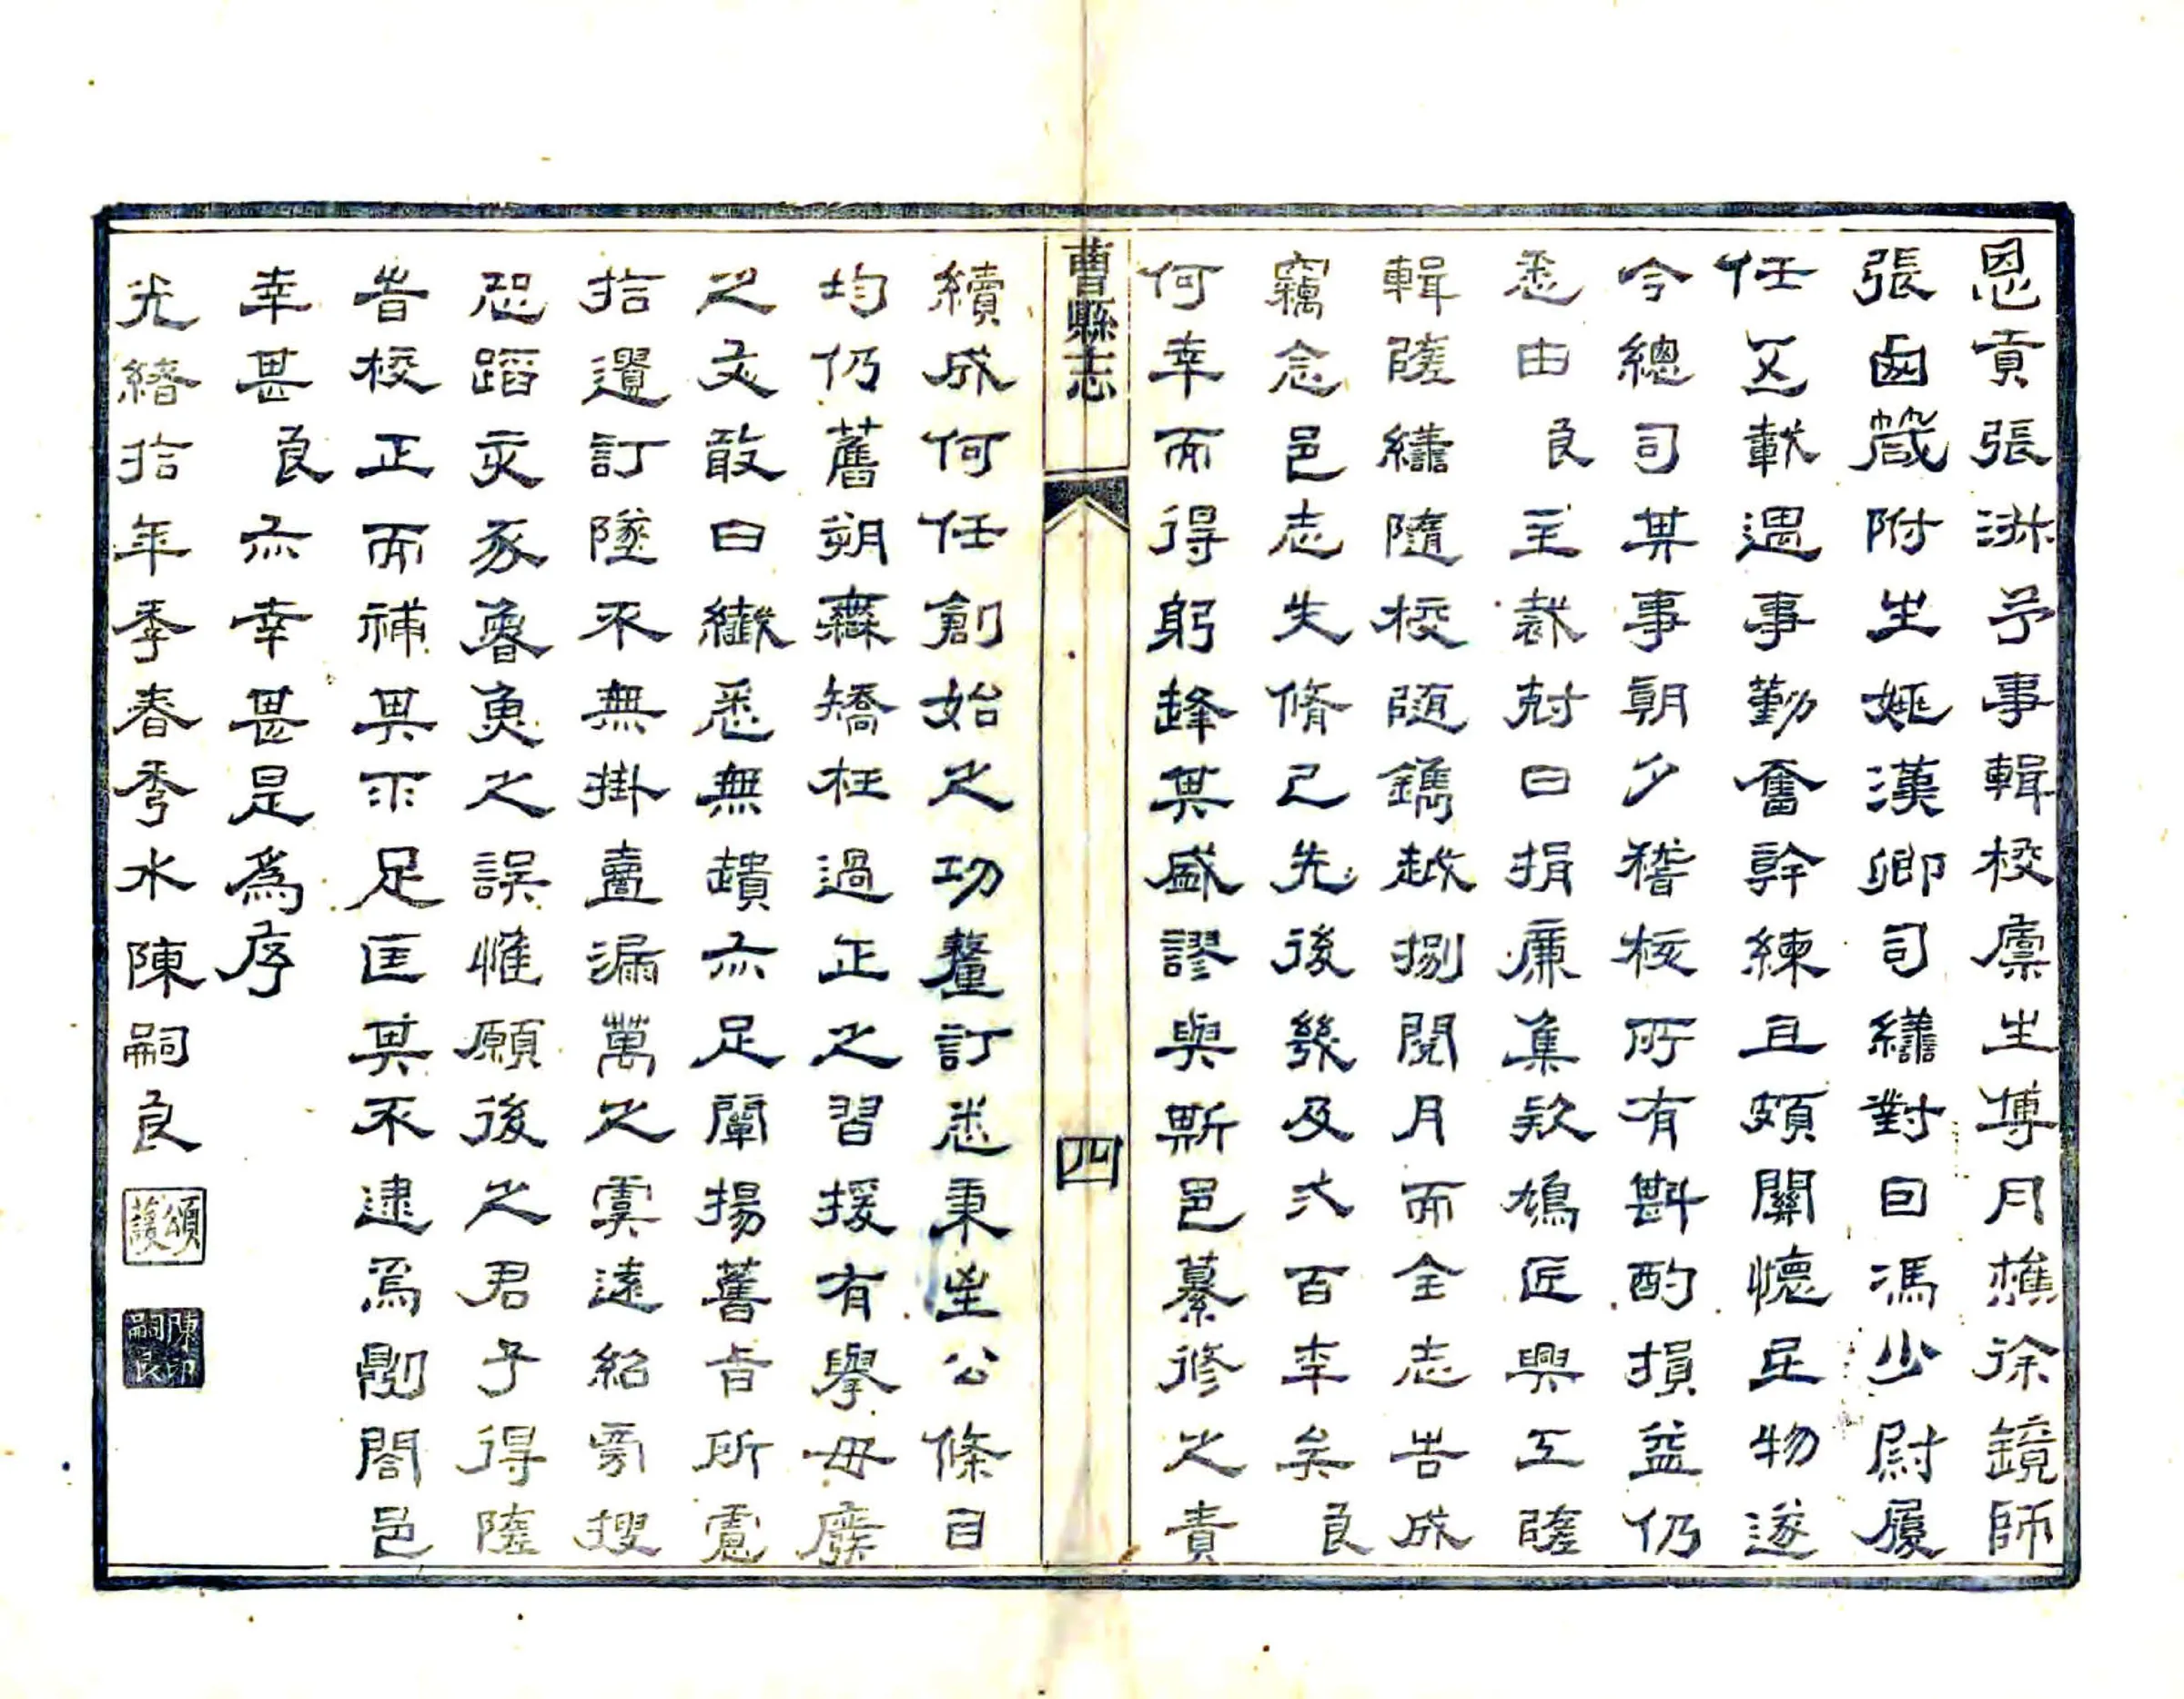 恩貢張淋芓事輯校廩生博月樵徐鏡師
張鹵箴附生姬漢卿司繕對曰馮少尉履
任五載遇事勤奮幹練且頗關懷民物遂
令總司其事朝夕稽核所有斟酌損益仍
悉由良主裁尅日捐廉集款鳩匠興工隨
輯隨繕隨校隨鐫越捌閱月而全志告成
竊念邑志失脩已先後幾及弍百年矣良
何幸而得躬逢其盛謬與斯邑纂修之責
曹縣志
四
續成何任創始之功釐訂悉秉至公條目
均仍舊朔無矯枉過正之習援有舉毋廢
之文敢曰纖悉無遺亦足闡揚舊旨所慮
拾遺訂墜不無掛壹漏萬之虞遠紹旁搜
恐蹈亥豕魯魚之誤惟願後之君子得隨
者校正而補其不足匡其不逮焉則闔邑
幸甚良亦幸甚是為序
光緒拾年季春秀水陳嗣良
頌護
陳嗣良印